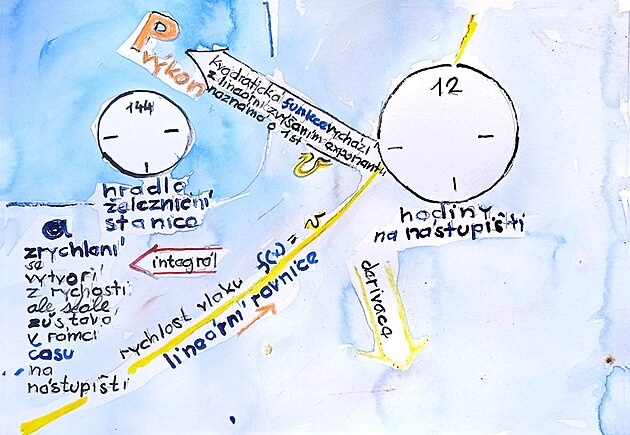 P
výkon
kvadratická funkce vychází
z lineární zvyšaním exponentu
neznámé o 1 st
v
144
hradlo
železniční
stanice
12
hodiny
na nástupišti
a
zrychlení
se
vytvoří
z rychosti
ale stále
zůstává
v rámci
času
na
nástupišti
integrál
rychlost vlaku f(x) = v
lineární rovnice
derivace